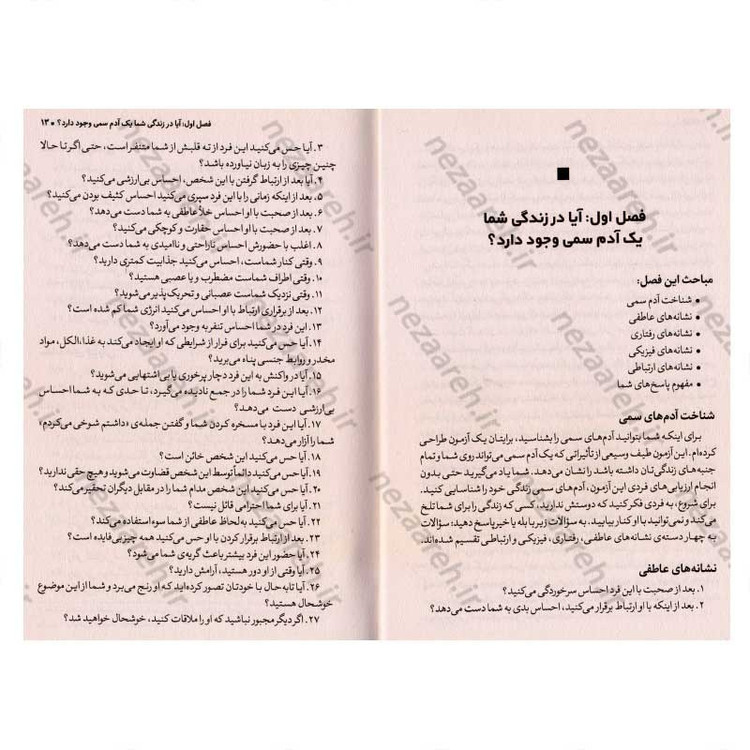 فصل اول: آیا در زندگی شما
یک آدم سمی وجود دارد؟
مباحث این فصل:
• شناخت آدم سمی
• نشانه‌های عاطفی
• نشانه‌های رفتاری
• نشانه‌های فیزیکی
• نشانه‌های ارتباطی
• مفهوم پاسخ‌های شما
شناخت آدم‌های سمی
برای اینکه شما بتوانید آدم‌های سمی را بشناسید، برایتان یک آزمون طراحی
کرده‌ام. این آزمون طیف وسیعی از تأثیراتی که یک آدم سمی می‌تواند روی شما و تمام
جنبه‌های زندگی‌تان داشته باشد را نشان می‌دهد. شما یاد می‌گیرید حتی بدون
انجام ارزیابی‌های فردی این آزمون، آدم‌های سمی زندگی خود را شناسایی کنید.
برای شروع، به فردی فکر کنید که دوستش ندارید، کسی که زندگی را برای شما تلخ
می‌کند و نمی‌توانید با او کنار بیایید. به سؤالات زیر با بله یا خیر پاسخ دهید: سؤالات
به چهار دسته‌ی نشانه‌های عاطفی، رفتاری، فیزیکی و ارتباطی تقسیم شده‌اند.
نشانه‌های عاطفی
۱. بعد از صحبت با این فرد احساس سرخوردگی می‌کنید؟
۲. بعد از اینکه با او ارتباط برقرار می‌کنید، احساس بدی به شما دست می‌دهد؟
فصل اول: آیا در زندگی شما یک آدم سمی وجود دارد؟ • ۱۳
۳. آیا حس می‌کنید این فرد از ته قلبش از شما متنفر است، حتی اگر تا حالا
چنین چیزی را به زبان نیاورده باشد؟
۴. آیا بعد از ارتباط گرفتن با این شخص، احساس بی‌ارزشی می‌کنید؟
۵. بعد از اینکه زمانی را با این فرد سپری می‌کنید احساس کثیف بودن می‌کنید؟
۶. بعد از صحبت با او احساس خلأ عاطفی به شما دست می‌دهد؟
۷. بعد از صحبت با او احساس حقارت و کوچکی می‌کنید؟
۸. اغلب با حضورش احساس ناراحتی و ناامیدی به شما دست می‌دهد؟
۹. وقتی کنار شماست، احساس می‌کنید جذابیت کمتری دارید؟
۱۰. وقتی اطراف شماست مضطرب و یا عصبی هستید؟
۱۱. وقتی نزدیک شماست عصبانی و تحریک‌پذیر می‌شوید؟
۱۲. بعد از برقراری ارتباط با او احساس می‌کنید انرژی شما کم شده است؟
۱۳. این فرد در شما احساس تنفر به وجود می‌آورد؟
۱۴. آیا حس می‌کنید برای فرار از شرایطی که او ایجاد می‌کند به غذا، الکل، مواد
مخدر و روابط جنسی پناه می‌برید؟
۱۵. آیا در واکنش به این فرد دچار پرخوری یا بی‌اشتهایی می‌شوید؟
۱۶. آیا این فرد شما را در جمع نادیده می‌گیرد، تا حدی که به شما احساس
بی‌ارزشی دست می‌دهد؟
۱۷. آیا این فرد با مسخره کردن شما و گفتن جمله‌ی «داشتم شوخی می‌کردم»
شما را آزار می‌دهد؟
۱۸. آیا حس می‌کنید این شخص خائن است؟
۱۹. آیا حس می‌کنید دائماً توسط این شخص قضاوت می‌شوید و هیچ حقی ندارید؟
۲۰. آیا حس می‌کنید این شخص مدام شما را در مقابل دیگران تحقیر می‌کند؟
۲۱. آیا برای شما احترامی قائل نیست؟
۲۲. آیا حس می‌کنید به لحاظ عاطفی از شما سوء استفاده می‌کند؟
۲۳. بعد از ارتباط برقرار کردن با او حس می‌کنید همه چیز بی‌فایده است؟
۲۴. آیا حضور این فرد بیشتر باعث گریه‌ی شما می‌شود؟
۲۵. آیا وقتی از او دور هستید، آرامش دارید؟
۲۶. آیا تا به حال با خودتان تصور کرده‌اید که او رنج می‌برد و شما از این موضوع
خوشحال هستید؟
۲۷. اگر دیگر مجبور نباشید که او را ملاقات کنید، خوشحال خواهید شد؟
nezaareh.ir